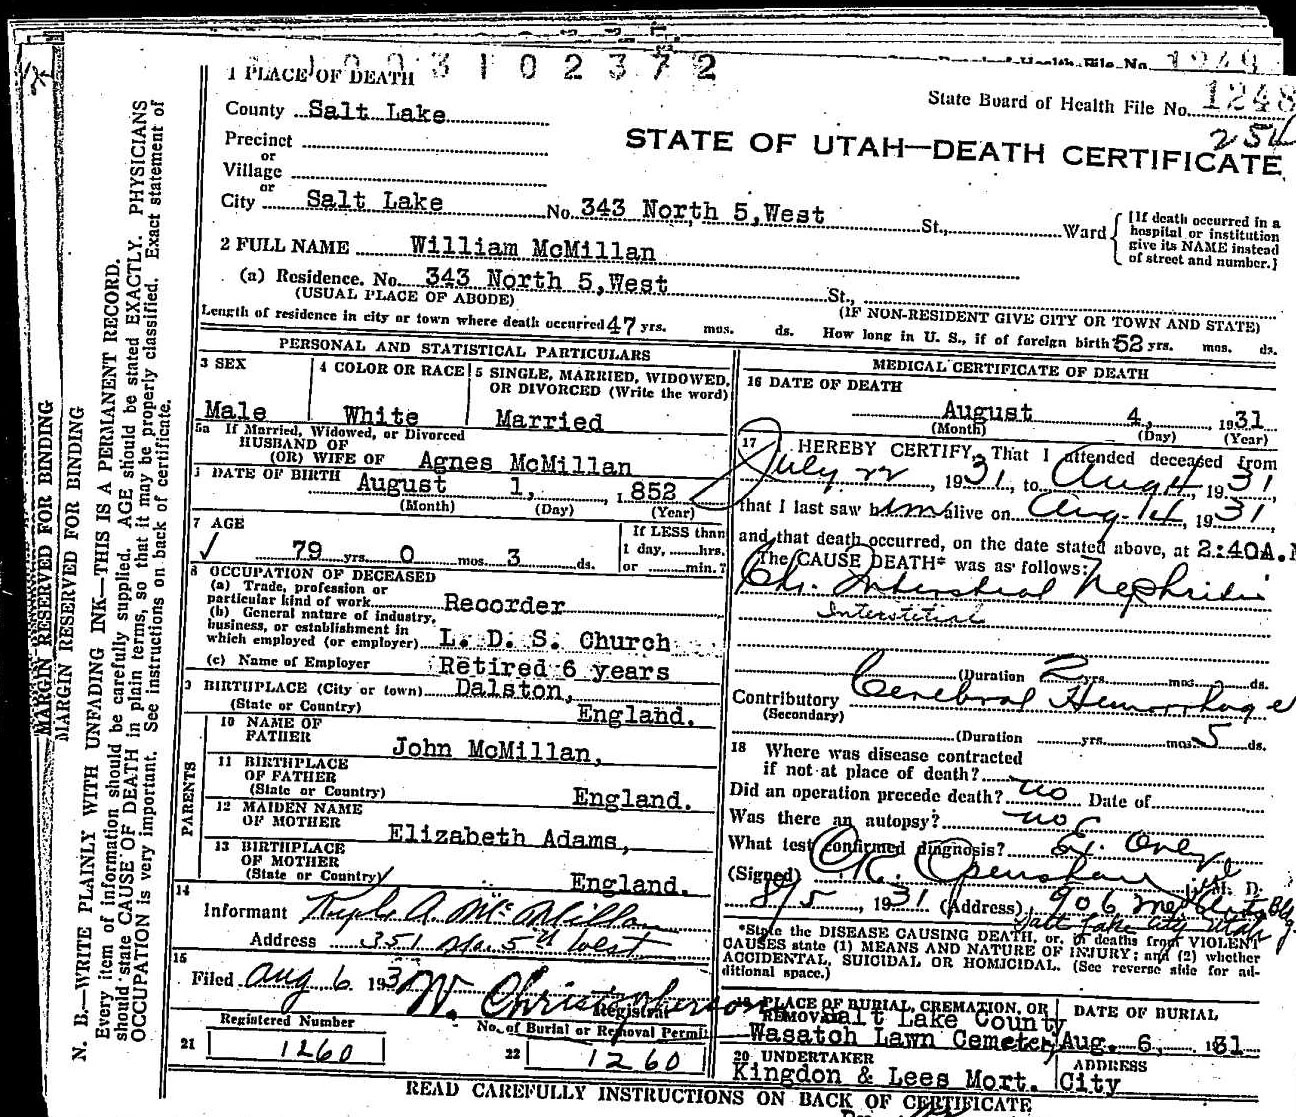 1003102372
Board of Health File No. 1249
1 PLACE OF DEATH
State Board of Health File No. 1248
County Salt Lake
STATE OF UTAH—DEATH CERTIFICATE
Precinct
or
Village
or
City Salt Lake No. 343 North 5,West St., Ward
[If death occurred in a
hospital or institution
give its NAME instead
of street and number.]
2 FULL NAME William McMillan
(a) Residence. No. 343 North 5,West St.,
(USUAL PLACE OF ABODE) (IF NON-RESIDENT GIVE CITY OR TOWN AND STATE)
Length of residence in city or town where death occurred 47 yrs. mos. ds. How long in U. S., if of foreign birth 52 yrs. mos. ds.
PERSONAL AND STATISTICAL PARTICULARS
3 SEX
Male
4 COLOR OR RACE
White
5 SINGLE, MARRIED, WIDOWED,
OR DIVORCED (Write the word)
Married
5a If Married, Widowed, or Divorced
HUSBAND OF
(OR) WIFE OF Agnes McMillan
DATE OF BIRTH August 1, 1852
(Month) (Day) (Year)
7 AGE
79 yrs. 0 mos. 3 ds.
If LESS than
1 day, hrs.
or min.?
8 OCCUPATION OF DECEASED
(a) Trade, profession or
particular kind of work Recorder
(b) General nature of industry,
business, or establishment in
which employed (or employer) L. D. S. Church
(c) Name of Employer Retired 6 years
9 BIRTHPLACE (City or town) Dalston,
(State or Country) England.
PARENTS
10 NAME OF
FATHER John McMillan,
11 BIRTHPLACE
OF FATHER
(State or Country) England.
12 MAIDEN NAME
OF MOTHER Elizabeth Adams,
13 BIRTHPLACE
OF MOTHER
(State or Country) England.
14
Informant A. McMillan
Address 351 No. 5th West
15
Filed Aug 6 193 W. Christopherson
Registrar
Registered Number
21 1260
No. of Burial or Removal Permit
22 1260
MEDICAL CERTIFICATE OF DEATH
16 DATE OF DEATH
August 4, 1931
(Month) (Day) (Year)
17 I HEREBY CERTIFY, That I attended deceased from
July 22, 1931, to Aug 4, 1931,
that I last saw him alive on Aug. 4, 1931,
and that death occurred, on the date stated above, at 2:40A.M
The CAUSE DEATH* was as follows:
Ch. Interstitial Nephritis
Interstitial
(Duration 2 yrs. mos. ds.
Contributory Cerebral Hemorrhage
(Secondary)
(Duration yrs. mos. 5 ds.
18 Where was disease contracted
if not at place of death?
Did an operation precede death? no Date of
Was there an autopsy? no
What test confirmed diagnosis? Only
(Signed) Openshaw M. D.
8/5, 1931 (Address) 906 Bldg.
Salt Lake City Utah
*State the DISEASE CAUSING DEATH, or, in deaths from VIOLENT
CAUSES state (1) MEANS AND NATURE OF INJURY; and (2) whether
ACCIDENTAL, SUICIDAL OR HOMICIDAL. (See reverse side for ad-
ditional space.)
19 PLACE OF BURIAL, CREMATION, OR
REMOVAL Salt Lake County
Wasatch Lawn Cemetery
DATE OF BURIAL
Aug. 6, 1931
20 UNDERTAKER
Kingdon & Lees Mort.
ADDRESS
City
READ CAREFULLY INSTRUCTIONS ON BACK OF CERTIFICATE
MARGIN RESERVED FOR BINDING
MARGIN RESERVED FOR BINDING
N. B.—WRITE PLAINLY WITH UNFADING INK—THIS IS A PERMANENT RECORD.
Every item of information should be carefully supplied. AGE should be stated EXACTLY. PHYSICIANS
should state CAUSE OF DEATH in plain terms, so that it may be properly classified. Exact statement of
OCCUPATION is very important. See instructions on back of certificate.